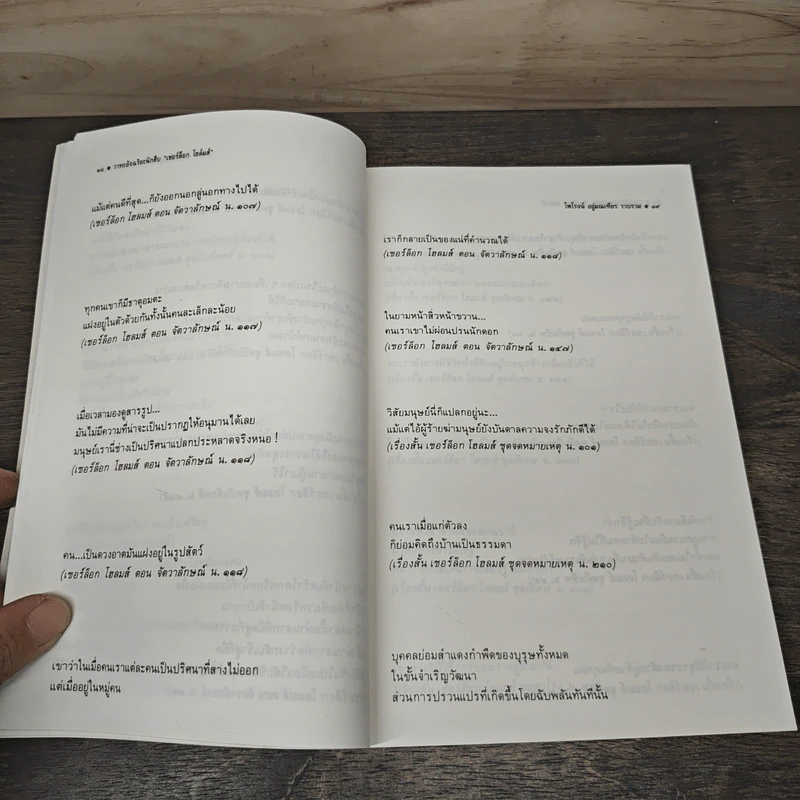 ๑๘ ● วาทะอัจฉริยะนักสืบ "เชอร์ล็อก โฮล์มส์"
แม้แต่คนดีที่สุด...ก็ยังออกนอกลู่นอกทางไปได้
(เชอร์ล็อก โฮลมส์ ตอน จัตวาลักษณ์ น. ๑๐๗)
ทุกคนเขาก็มีธาตุอมตะ
แฝงอยู่ในตัวด้วยกันทั้งนั้นคนละเล็กละน้อย
(เชอร์ล็อก โฮลมส์ ตอน จัตวาลักษณ์ น. ๑๑๗)
เมื่อเวลามองดูสารรูป...
มันไม่มีความที่น่าจะเป็นปรากฏให้อนุมานได้เลย
มนุษย์เรานี่ช่างเป็นปริศนาแปลกประหลาดจริงหนอ !
(เชอร์ล็อก โฮลมส์ ตอน จัตวาลักษณ์ น. ๑๑๘)
คน...เป็นดวงอาตมันแฝงอยู่ในรูปสัตว์
(เชอร์ล็อก โฮลมส์ ตอน จัตวาลักษณ์ น. ๑๑๘)
เขาว่าในเมื่อคนเราแต่ละคนเป็นปริศนาที่สางไม่ออก
แต่เมื่ออยู่ในหมู่คน
ไพโรจน์ อยู่มณเฑียร รวบรวม ● ๑๙
เราก็กลายเป็นของแน่ที่คำนวณได้
(เชอร์ล็อก โฮลมส์ ตอน จัตวาลักษณ์ น. ๑๑๘)
ในยามหน้าสิ่วหน้าขวาน...
คนเราเขาไม่ผ่อนปรนนักดอก
(เชอร์ล็อก โฮลมส์ ตอน จัตวาลักษณ์ น. ๑๔๗)
วิสัยมนุษย์นี่ก็แปลกอยู่นะ...
แม้แต่ไอ้ผู้ร้ายฆ่ามนุษย์ยังบันดาลความจงรักภักดีได้
(เรื่องสั้น เชอร์ล็อก โฮลมส์ ชุดจดหมายเหตุ น. ๑๐๑)
คนเราเมื่อแก่ตัวลง
ก็ย่อมคิดถึงบ้านเป็นธรรมดา
(เรื่องสั้น เชอร์ล็อก โฮลมส์ ชุดจดหมายเหตุ น. ๒๑๐)
บุคคลย่อมสำแดงกำพืดของบุรุษทั้งหมด
ในขั้นจำเริญวัฒนา
ส่วนการปรวนแปรที่เกิดขึ้นโดยฉับพลันทันทีนั้น